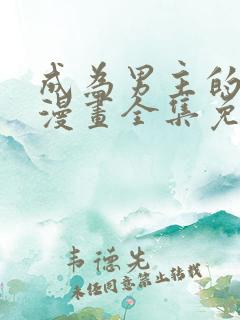 成為男主的
漫畫全集免
韦德先
未经同意禁止转载